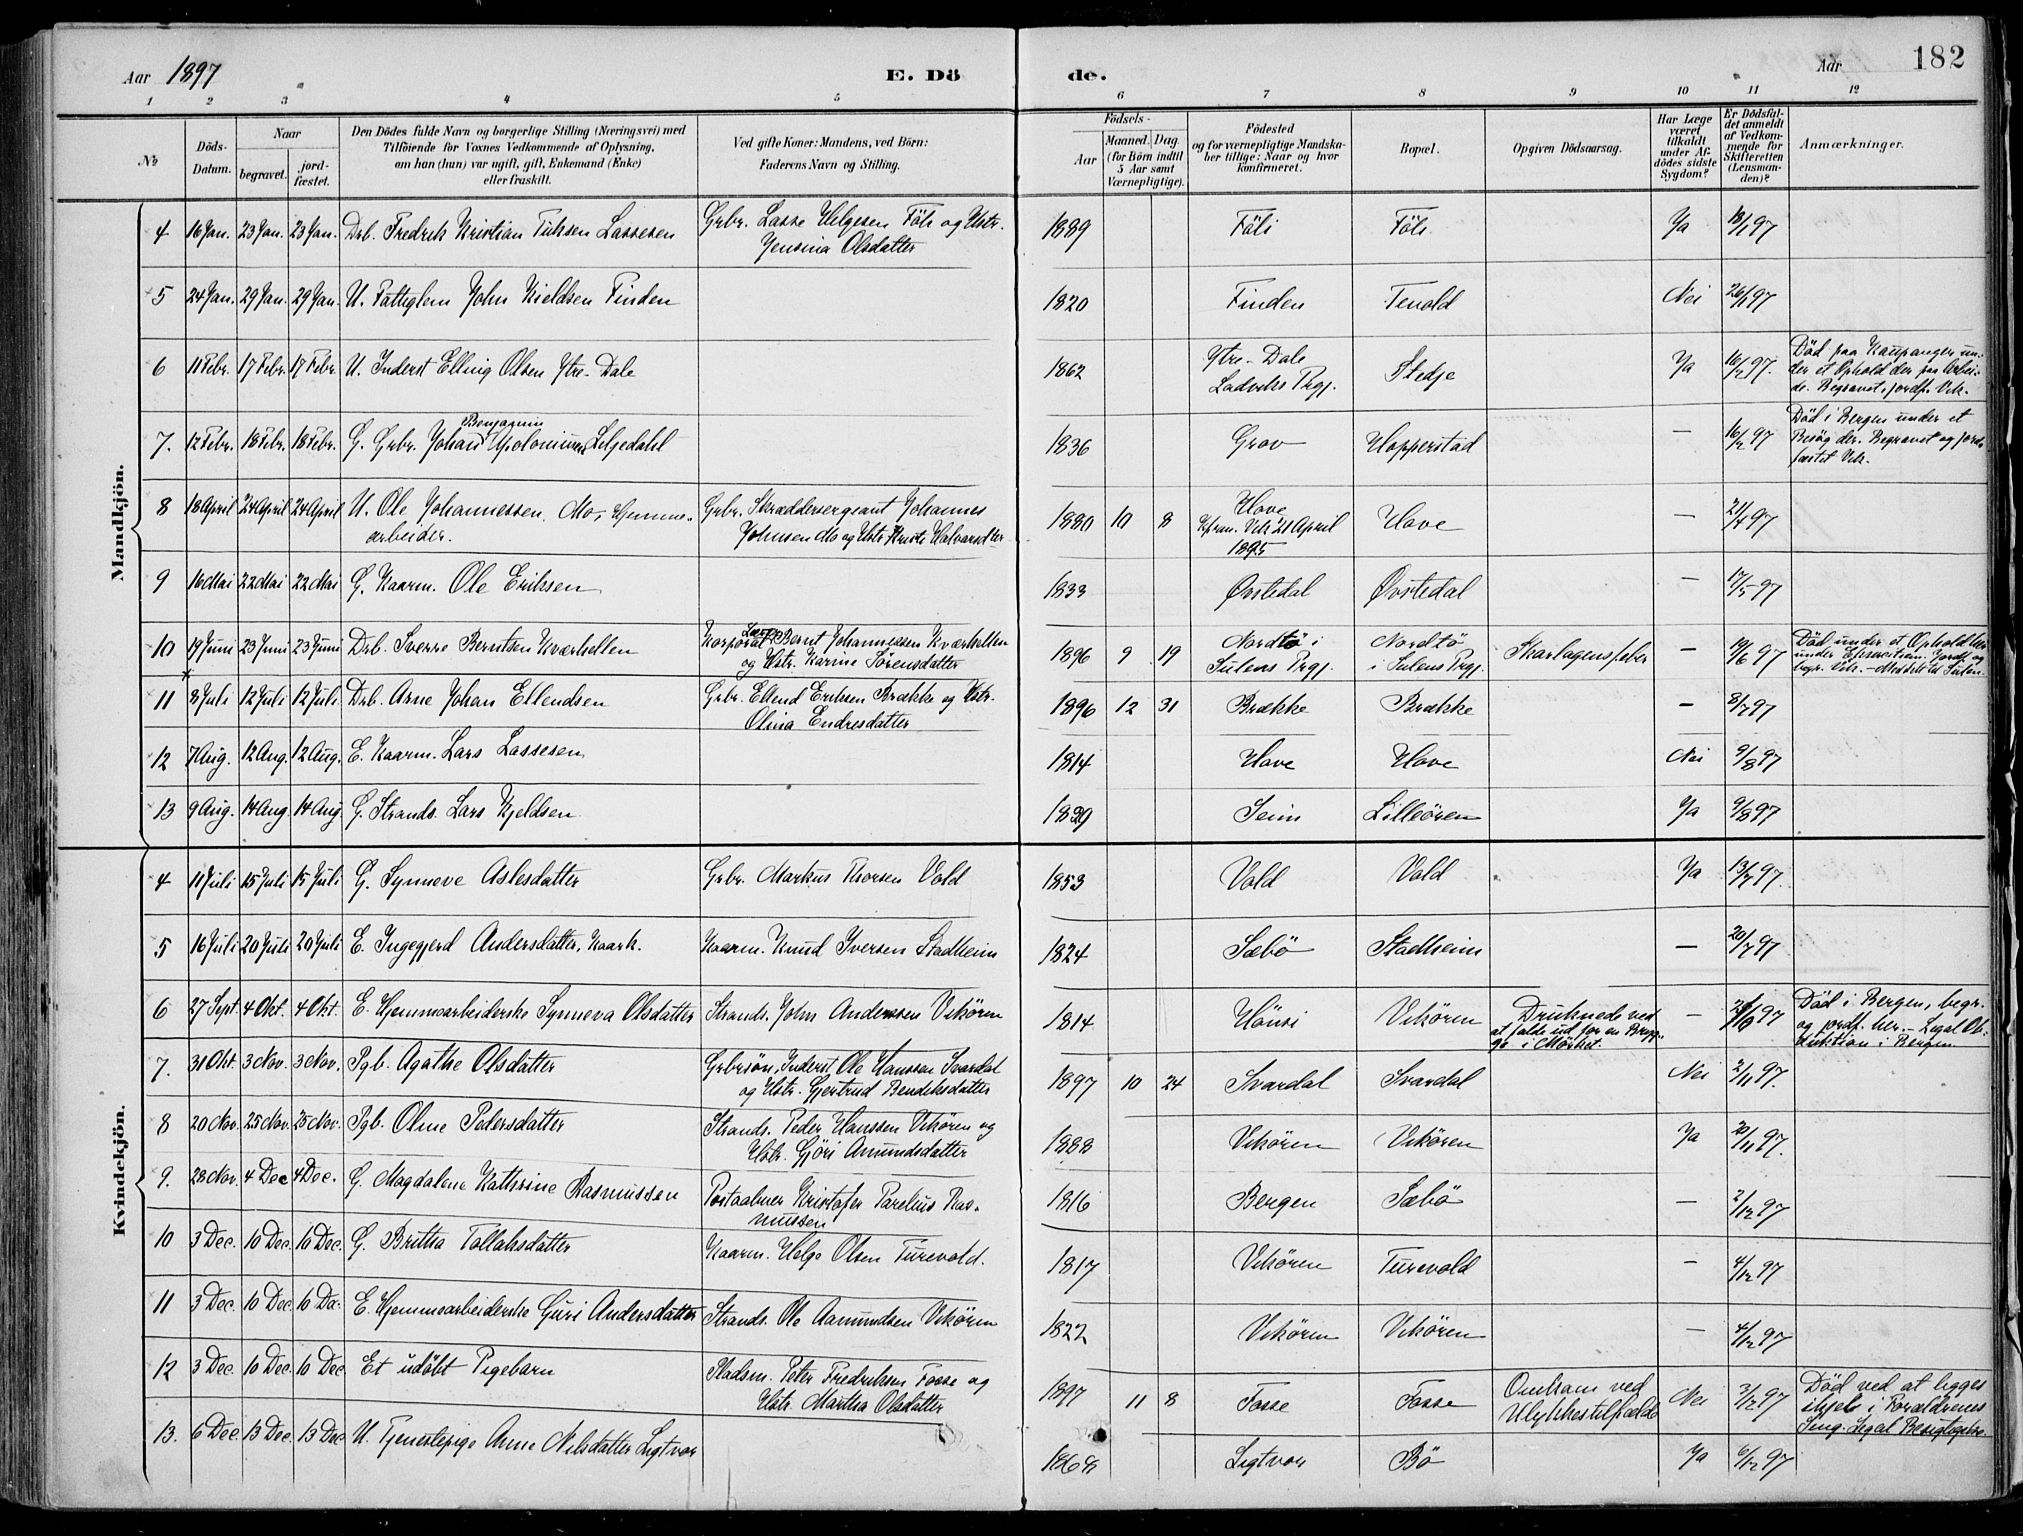 182
Aar 1897
E. Dö de.
Aar
1 2 3 4 5 6 7 8 9 10 11 12
№
Döds-Datum.
Naar
begravet.
jord-fæstet.
Den Dödes fulde Navn og borgerlige Stilling (Næringsvei) med
Tilföiende for Voxnes Vedkommende af Oplysning,
om han (hun) var ugift, gift, Enkemand (Enke)
eller fraskilt.
Ved gifte Koner: Mandens, ved Börn:
Faderens Navn og Stilling.
Födsels-
Aar
Maaned. Dag.
(for Börn indtil
5 Aar samt
Værnepligtige).
Födested
og for værnepligtige Mandska-
ber tillige: Naar og hvor
konfirmeret.
Bopæl.
Opgiven Dödsaarsag.
Har Læge
været
tilkaldt
under Af-
dödes sidste
Sygdom?
Er Dödsfal-
det anmeldt
af Vedkom-
mende for
Skifteretten
(Lensman-
den)?
Anmærkninger.
Mandkjön.
4 16 Jan. 23 Jan. 23 Jan. Drb. Fredrik Kristian Lassesen Grbr. Lasse Helgesen Föli og Hstr.
Jensina Olsdatter 1889 Föli Föli Ja 18/1 97
5 24 Jan. 29 Jan. 29 Jan. U. Fattiglem John Kieldsen Finden 1820 Finden Tenold Nei 26/1 97
6 11 Febr. 17 Febr. 17 Febr. U. Inderst Elling Olsen Ytre-Dale 1862 Ytre-Dale
Ladviks Prgj. Stedje Ja 16/2 97. Död paa Kaupanger un-
der et Ophold der paa Arbei-
de. Begravet, jordf. Vik.
7. 12 Febr. 18 Febr. 18 Febr. G. Grbr. Johan Benjamin Apolonius Liljedahl 1836 Grov Hopperstad — 16/2 97 Död i Bergen under et
Besög der. Begravet og jord-
fæstet Vik.
8 18 April 24 April 24 April U. Ole Johannessen Mo, Hjemme-
arbeider. Grbr. Skræddersergeant Johannes
Johnsen Mo og Hstr. Kristi Halvarsdtr. 1880 10 8 Hove
Kfrm. Vik 21 April
1895 Hove — 21/4 97
9 16 Mai 22 Mai 22 Mai G. Kaarm. Ole Eriksen 1833 Øvstedal Øvstedal — 17/5 97
10 19 Juni 23 Juni 23 Juni Drb. Sverre Berntsen Kværhellen Korporal Bernt Johannessen Kværhellen
og Hstr. Karine Sörensdatter 1896 9 19 Nordtö i
Sulens Prgj. Nordtö
i Sulens Prgj. Skarlagensfeber — 19/6 97 Död under et Ophold her
under Jordf. og
begr. Vik. — Meddelt til Sulen
11 8 Juli 12 Juli 12 Juli Drb. Arne Johan Ellendsen Grbr. Ellend Eriksen Brække og Hstr.
Olina Endresdatter 1896 12 31 Brække Brække - 8/7 97
12 7 Aug. 12 Aug. 12 Aug. E. Kaarm. Lars Lassesen 1814 Hove Hove Nei 9/8 97
13 9 Aug. 14 Aug 14 Aug G. Strands. Lars Kjeldsen 1829 Seim Lilleören Ja 9/8 97
Kvindekjön.
4 11 Juli 15 Juli 15 Juli G. Synneve Aslesdatter Grbr. Markus Thorsen Vold 1853 Vold Vold Ja 13/7 97.
5 16 Juli 20 Juli 20 Juli E. Ingegjerd Andersdatter, Kaark. Kaarm. Knud Iversen Stadheim 1824 Sæbö Stadheim — 20/7 97
6 27 Sept. 4 Okt. 4 Okt. E. Hjemmearbeiderske Synneva Olsdatter Strands. John Anderssen Vikören 1814 Hönsi Vikören Druknede ved
at falde ud for en Bryg-
ge i Mörket. — 2/10 97 Död i Bergen, begr.
og jordf. her. — Legal Ob-
duktion i Bergen.
7. 31 Okt. 3 Nov. 3 Nov. Pgb. Agathe Olsdatter Grbrsön, Inderst Ole Hanssen Svardal
og Hstr. Gjertrud Bendiksdatter 1897 10 24 Svardal Svardal Nei 2/11 97.
8 20 Nov. 25 Nov. 25 Nov. Pgb. Oline Pedersdatter Strands. Peder Hanssen Vikören og
Hstr. Gjöri Amundsdatter 1888 Vikören Vikören Ja 20/11 97.
9. 28 Nov. 4 Dec 4 Dec. G. Magdalene Kathrine Rasmussen Postaabner Kristofer Parelius Ras-
mussen 1816 Bergen Sæbö — 2/12 97
10 3 Dec. 10 Dec. 10 Dec. G. Britha Tollaksdatter Kaarm. Helge Olsen Turevold. 1817 Vikören Turevold — 4/12 97
11 3 Dec. 10 Dec. 10 De. E. Hjemmearbeiderske Guri Andersdatter Strands. Ole Aamundsen Vikören 1822 Vikören Vikören — 4/12 97
12 3 Dec. 10 Dec. 10 Dec. Et udöbt Pigebarn Pladsm. Peter Fredriksen Fosse og
Hstr. Martha Olsdatter 1897 11 8 Fosse Fosse Omkom ved
Ulykkestilfælde Nei 3/12 97 Död ved at ligges
ihjel i Forældrenes
Seng. Legal Besigtigelse.
13. 6 Dec. 13 Dec 13 Dec U. Tjenestepige Anne Nilsdatter Ligtvor 1868 Ligtvor Bö Ja 6/12 97